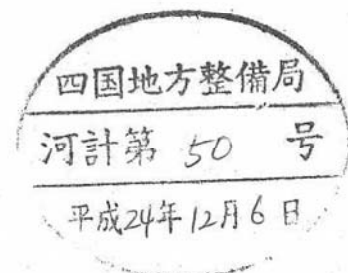 四国地方整備局
河計第 50 号
平成24年12月6日